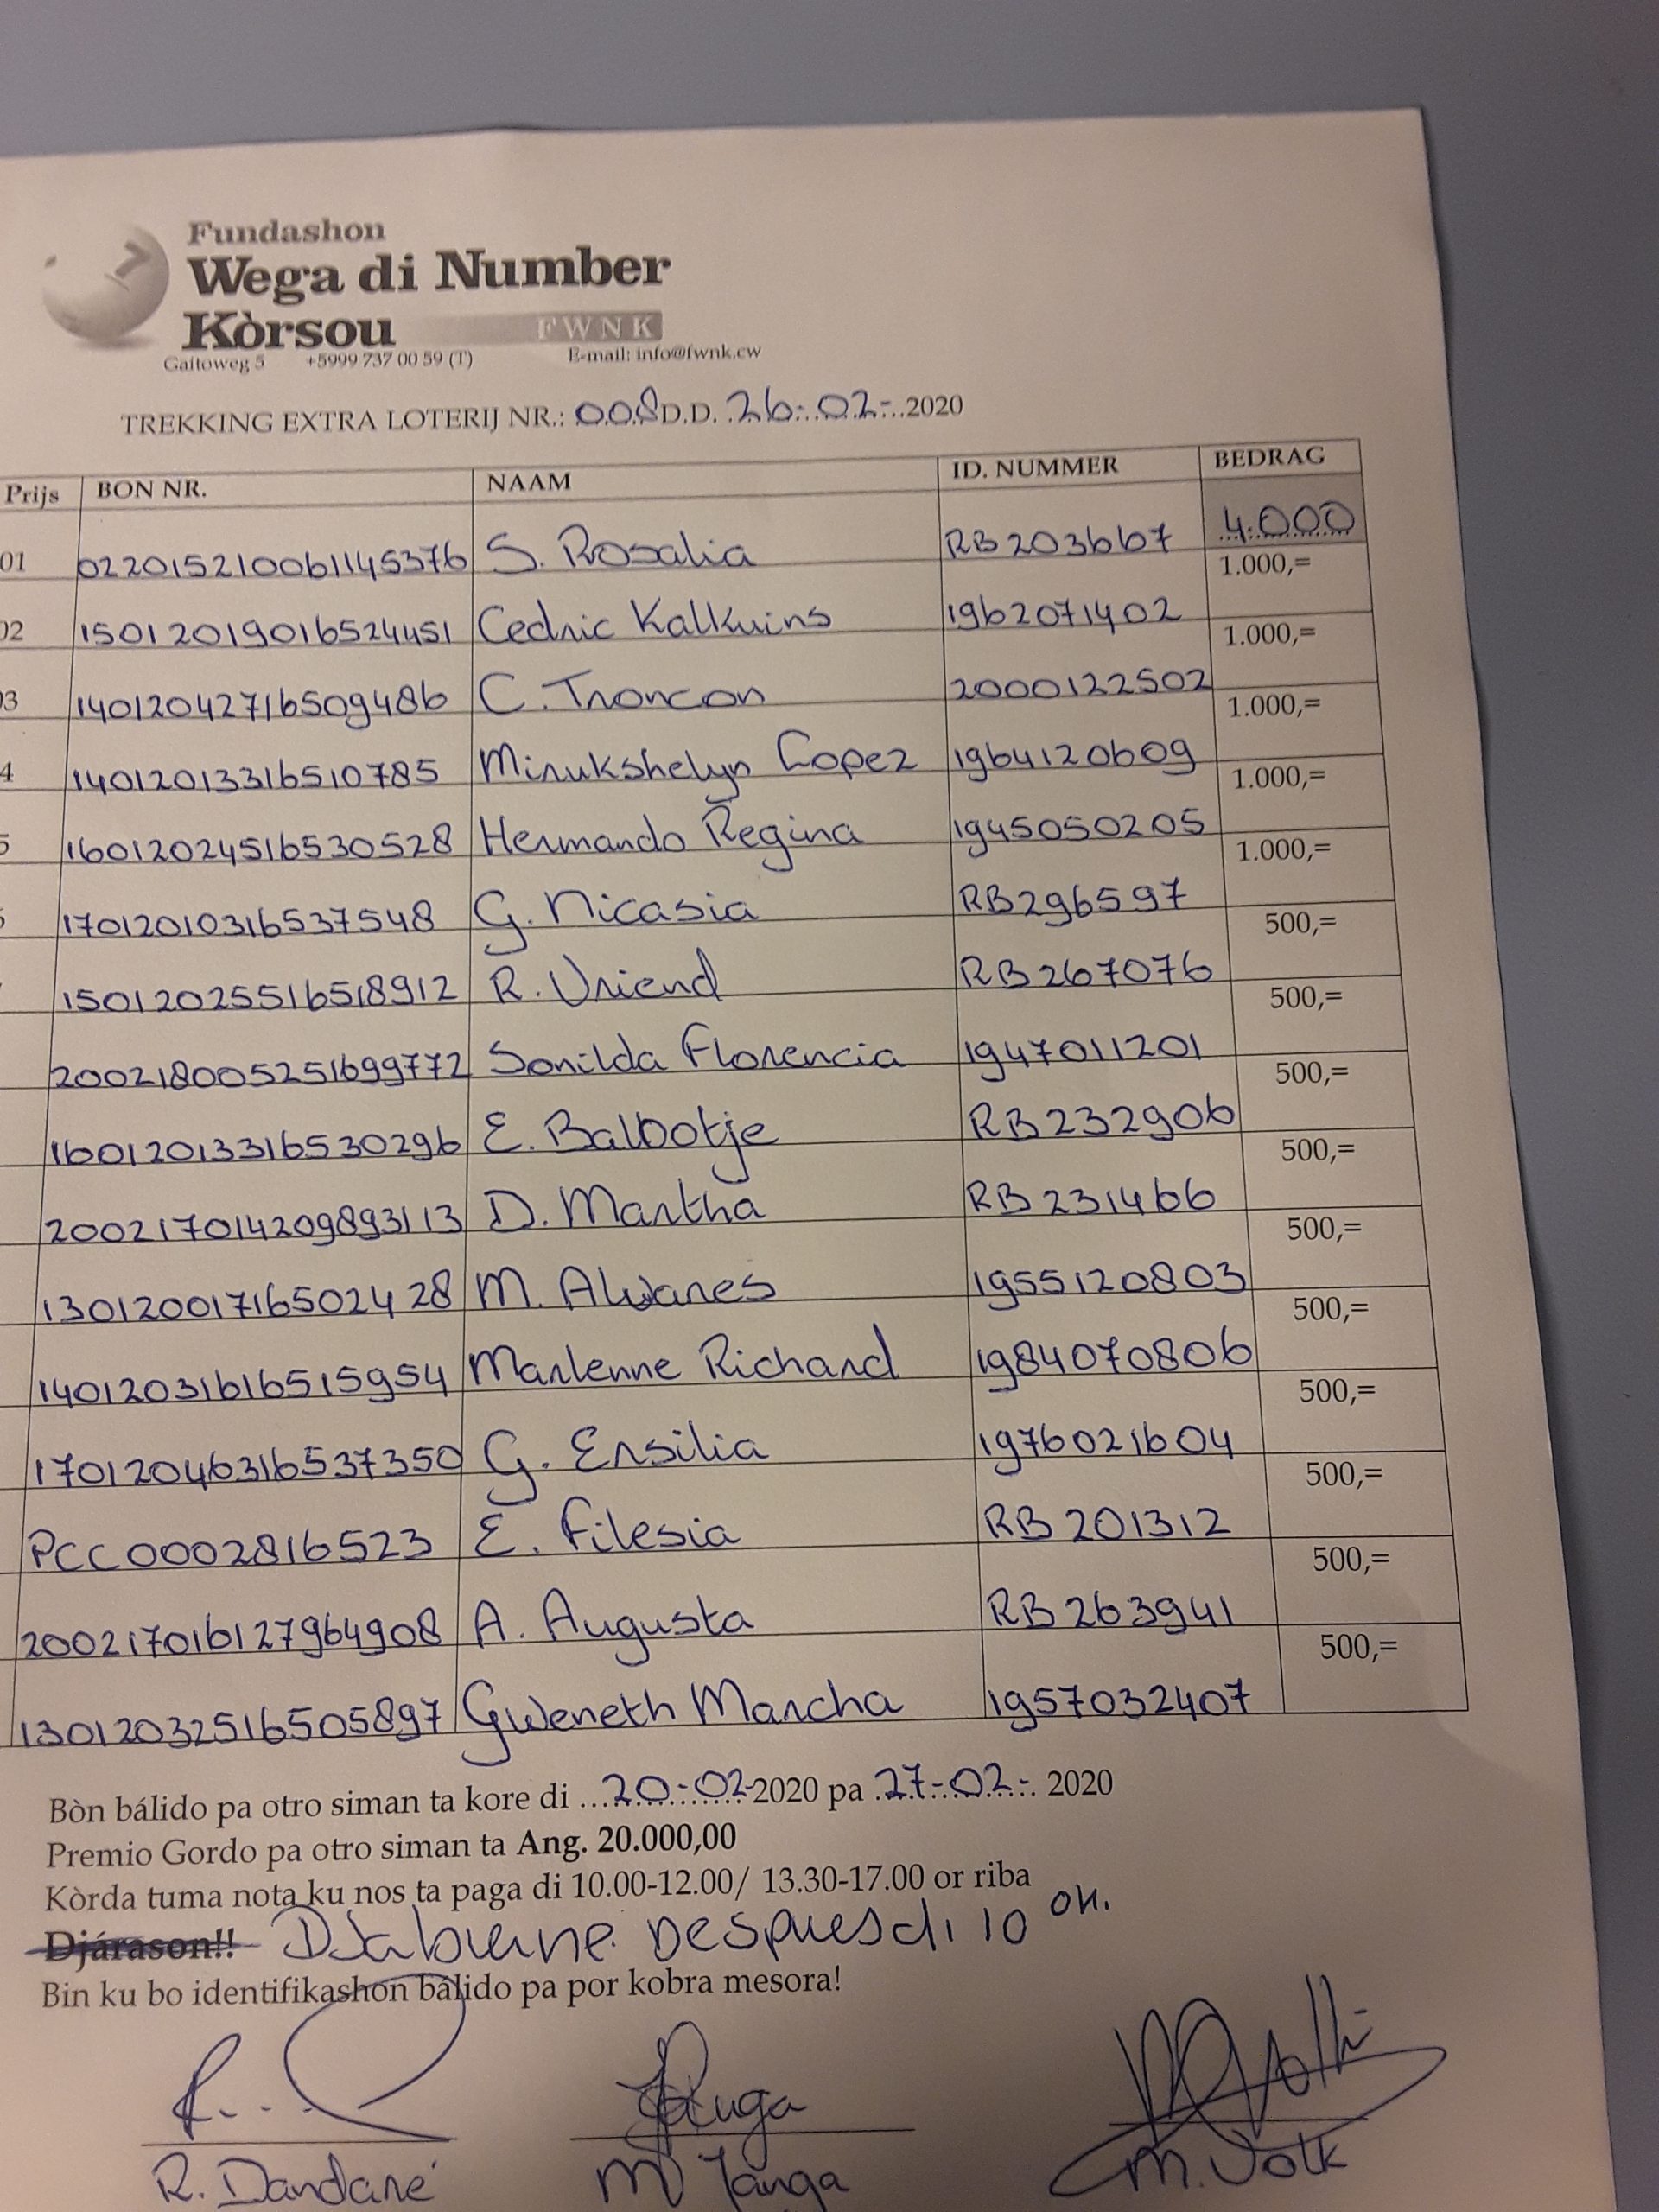 Fundashon
Wega di Number
Kòrsou FWNK
Gaitoweg 5 +5999 737 00 59 (T) E-mail: info@fwnk.cw
TREKKING EXTRA LOTERIJ NR.: 008 D.D. 26-02-2020
Prijs BON NR. NAAM ID. NUMMER BEDRAG
01 022015210061145376 S. Rosalia RB203667 4.000
1.000,=
02 15012019016524451 Cedric Kalkuins 1962071402
1.000,=
03 14012042716509486 C. Troncon 2000122502
1.000,=
4 14012013316510785 Minukshelyn Lopez 1964120609
1.000,=
5 16012024516530528 Hermando Regina 1945050205
1.000,=
17012010316537548 G. Nicasia RB296597
500,=
15012025516518912 R. Vriend RB267076
500,=
200218005251699772 Sonilda Florencia 1947011201
500,=
16012013316530296 E. Balbotje RB232906
500,=
2002170142098931 13 D. Martha RB231466
500,=
130120017165024 28 M. Alvares 1955120803
500,=
14012031616515954 Marlenne Richard 1984070806
500,=
17012046316537350 G. Ersilia 1976021604
500,=
PCC0002816523 E. Filesia RB201312
500,=
200217016127964908 A. Augusta RB263941
500,=
13012032516505897 Gweneth Marcha 1957032407
Bòn bálido pa otro siman ta kore di 20-02-2020 pa 27-02-2020
Premio Gordo pa otro siman ta Ang. 20.000,00
Kòrda tuma nota ku nos ta paga di 10.00-12.00/ 13.30-17.00 or riba
Djárason!! Djabierne Despues di 10 or.
Bin ku bo identifikashon bálido pa por kobra mesora!
R. Dandaré M Janga M. Volk